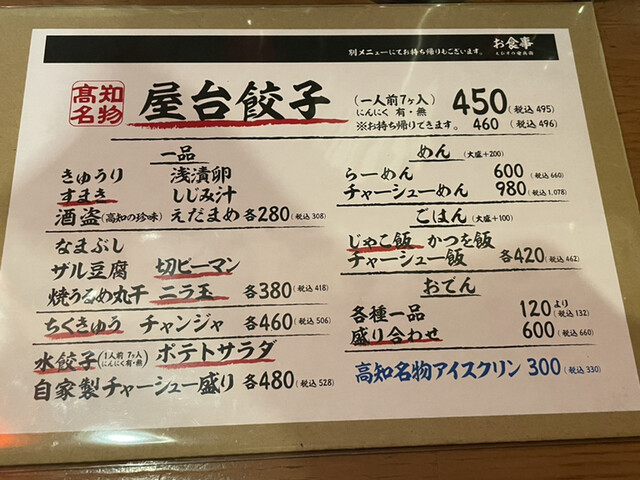 お食事
別メニューにてお持ち帰りもございます。
高知名物
屋台餃子
(一人前7ヶ入) 450(税込495)
にんにく 有・無
※お持ち帰りできます。 460 (税込 496)
一品
きゅうり 浅漬卵
すまき しじみ汁
酒盗(高知の珍味) えだまめ 各280(税込 308)
なまぶし
ザル豆腐 切ピーマン
焼うるめ丸干 ニラ玉 各380(税込 418)
ちくきゅう チャンジャ 各460(税込 506)
水餃子(1人前 7ヶ入 にんにく有・無) ポテトサラダ
自家製チャーシュー盛り 各480(税込 528)
めん (大盛+200)
らーめん 600(税込 660)
チャーシューめん 980(税込 1,078)
ごはん (大盛+100)
じゃこ飯 かつを飯
チャーシュー飯 各420(税込 462)
おでん
各種一品 120より(税込 132)
盛り合わせ 600(税込 660)
高知名物アイスクリン 300(税込 330)